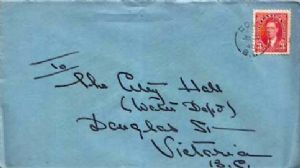 To
The City Hall
(Water Dept)
Douglas St—
Victoria
B.C.